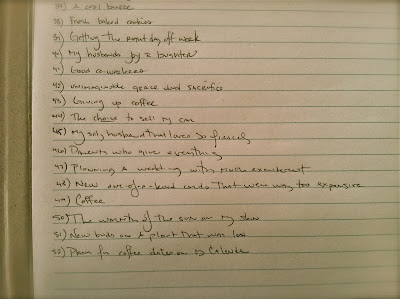 37) A cool breeze
38) Fresh baked cookies
39) Getting the right day off work
40) My husbands joy & laughter
41) Good co-workers
42) unimaginable grace and sacrifice
43) Giving up coffee
44) The choice to sell my car
45) My silly husband that loves so fiercely
46) Parents who give everything
47) Planning a wedding with much excitement
48) New one-of-a-kind cards that were way too expensive
49) Coffee
50) The warmth of the sun on my skin
51) New buds on a plant that was lost
52) Plans for coffee dates on